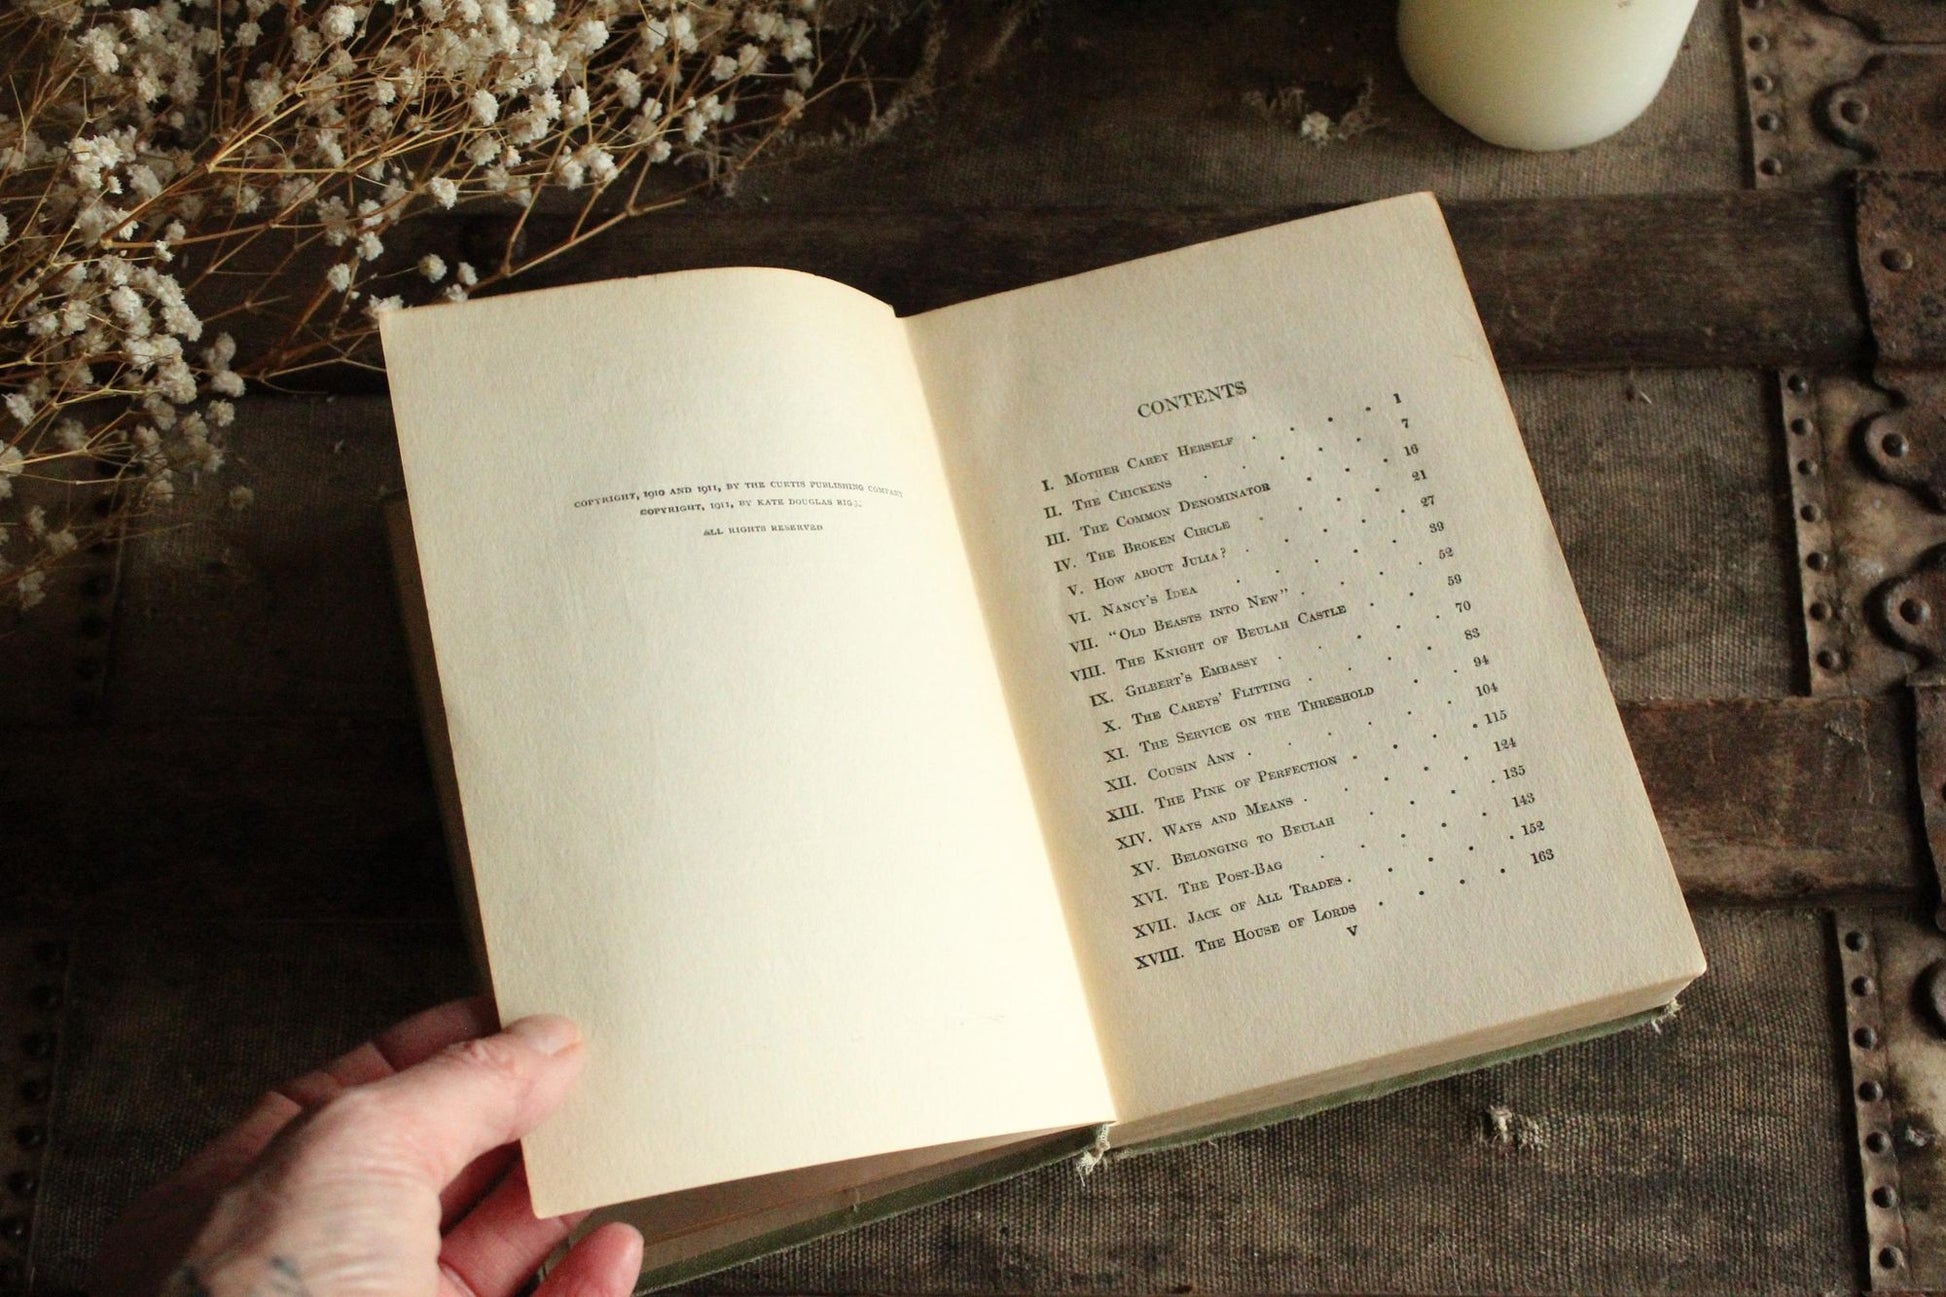 COPYRIGHT, 1910 AND 1911, BY THE CURTIS PUBLISHING COMPANY
COPYRIGHT, 1911, BY KATE DOUGLAS RIGGS
ALL RIGHTS RESERVED
CONTENTS
I. MOTHER CAREY HERSELF . . . . 1
II. THE CHICKENS . . . . . 7
III. THE COMMON DENOMINATOR . . . . 16
IV. THE BROKEN CIRCLE . . . . . 21
V. HOW ABOUT JULIA? . . . . . 27
VI. NANCY'S IDEA . . . . . 39
VII. "OLD BEASTS INTO NEW" . . . . . 52
VIII. THE KNIGHT OF BEULAH CASTLE . . . 59
IX. GILBERT'S EMBASSY . . . . . 70
X. THE CAREYS' FLITTING . . . . . 83
XI. THE SERVICE ON THE THRESHOLD . . . 94
XII. COUSIN ANN . . . . . . 104
XIII. THE PINK OF PERFECTION . . . . 115
XIV. WAYS AND MEANS . . . . . 124
XV. BELONGING TO BEULAH . . . . . 135
XVI. THE POST-BAG . . . . . 143
XVII. JACK OF ALL TRADES . . . . . 152
XVIII. THE HOUSE OF LORDS . . . . 163
V